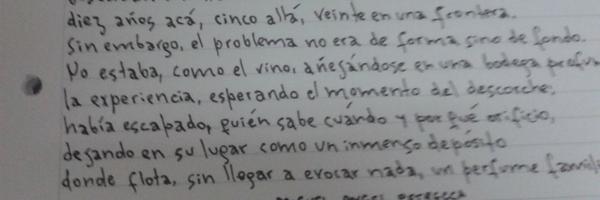 diez años acá, cinco allá, veinte en una frontera.
Sin embargo, el problema no era de forma sino de fondo.
No estaba, como el vino, añejándose en una bodega profun
la experiencia, esperando el momento del descorche;
había escapado, quién sabe cuándo y por qué orificio,
dejando en su lugar como un inmenso depósito
donde flota, sin llegar a evocar nada, un perfume famili